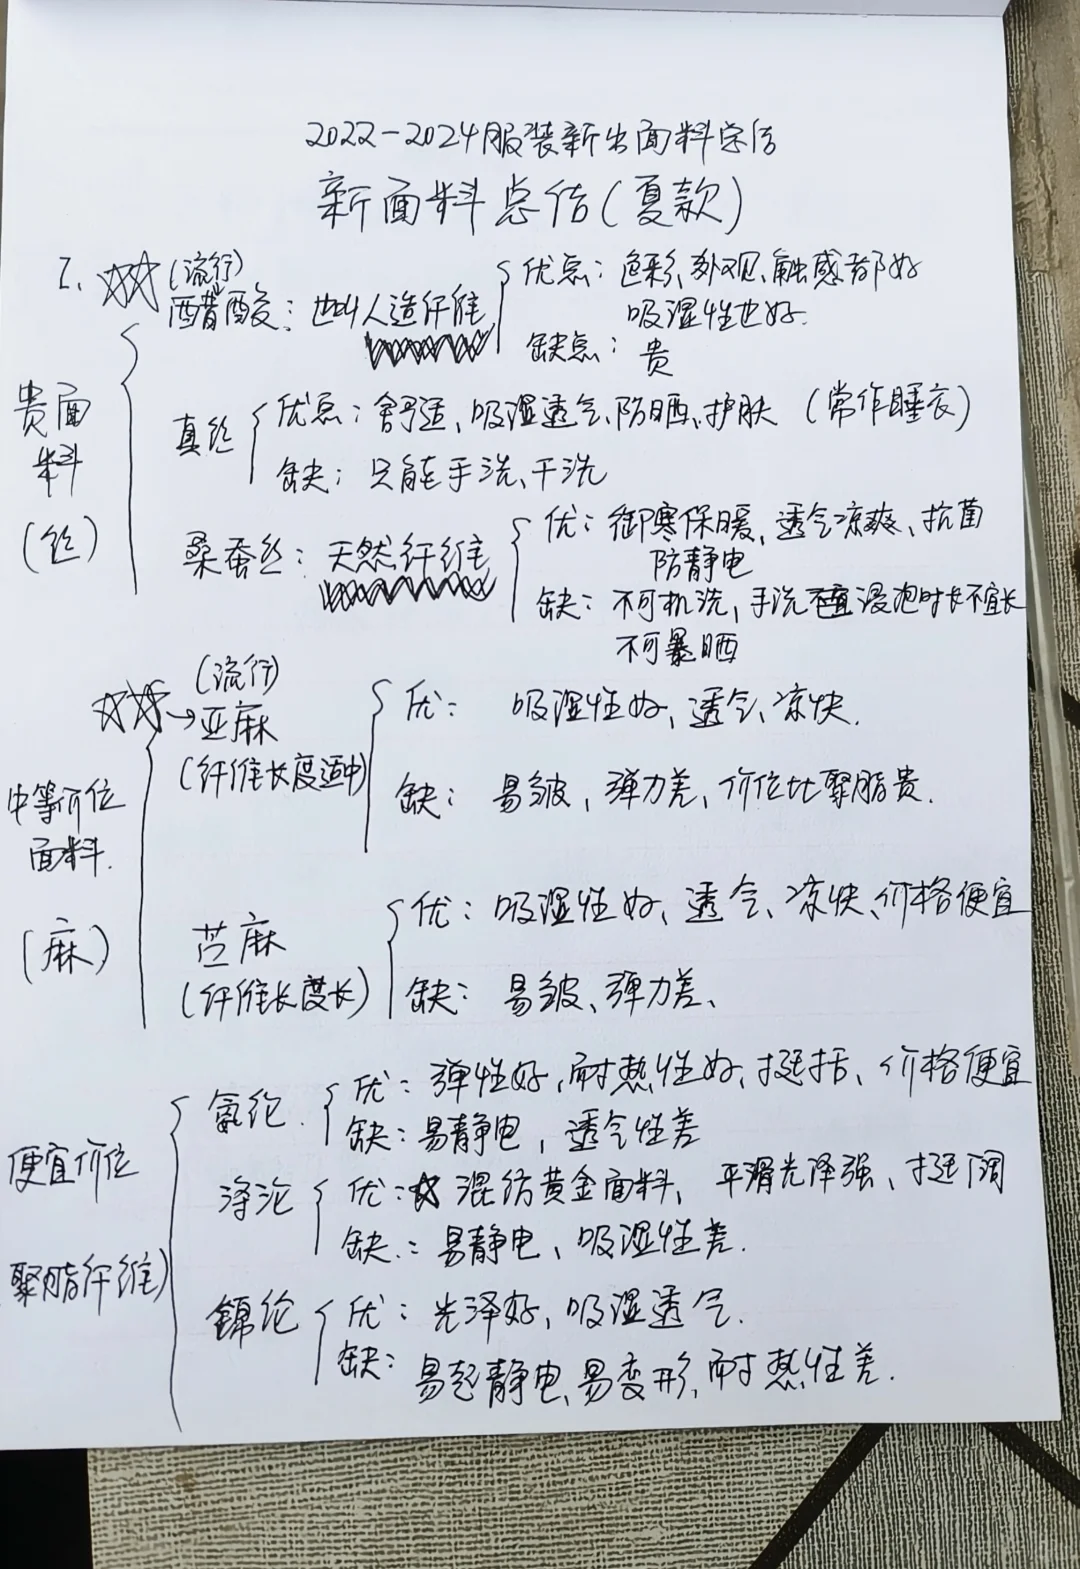 2022-2024服装新出面料总结
新面料总结(夏款)
1、☆☆(流行)
醋酸:也叫人造纤维
优点:色彩、外观、触感都好
吸湿性也好.
缺点:贵
贵面
料
(丝)
真丝
优点:舒适、吸湿透气、防晒、护肤 (常作睡衣)
缺:只能手洗、干洗
桑蚕丝:天然纤维
优:御寒保暖、透气凉爽、抗菌
防静电
缺:不可机洗,手洗不宜浸泡时长不宜长
不可暴晒
☆☆→(流行)
亚麻
(纤维长度适中)
优: 吸湿性好、透气、凉快.
缺: 易皱,弹力差,价位比聚脂贵.
中等价位
面料.
(麻)
苎麻
(纤维长度长)
优:吸湿性好、透气、凉快、价格便宜
缺: 易皱、弹力差、
便宜价位
聚脂纤维)
氨纶.
优:弹性好,耐热性好、挺括、价格便宜
缺:易静电,透气性差
涤沦
优:☆混纺黄金面料, 平滑光泽强、挺阔
缺.:易静电、吸湿性差.
锦纶
优:光泽好,吸湿透气.
缺:易起静电、易变形,耐热性差.